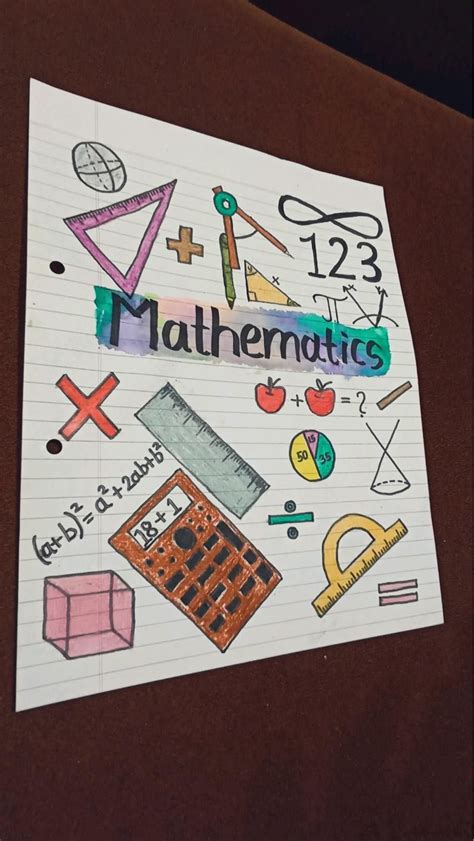 123
x
y
π
x
y
Mathematics
+ = ?
15
50
35
(a+b)² = a² + 2ab + b²
18 + 1